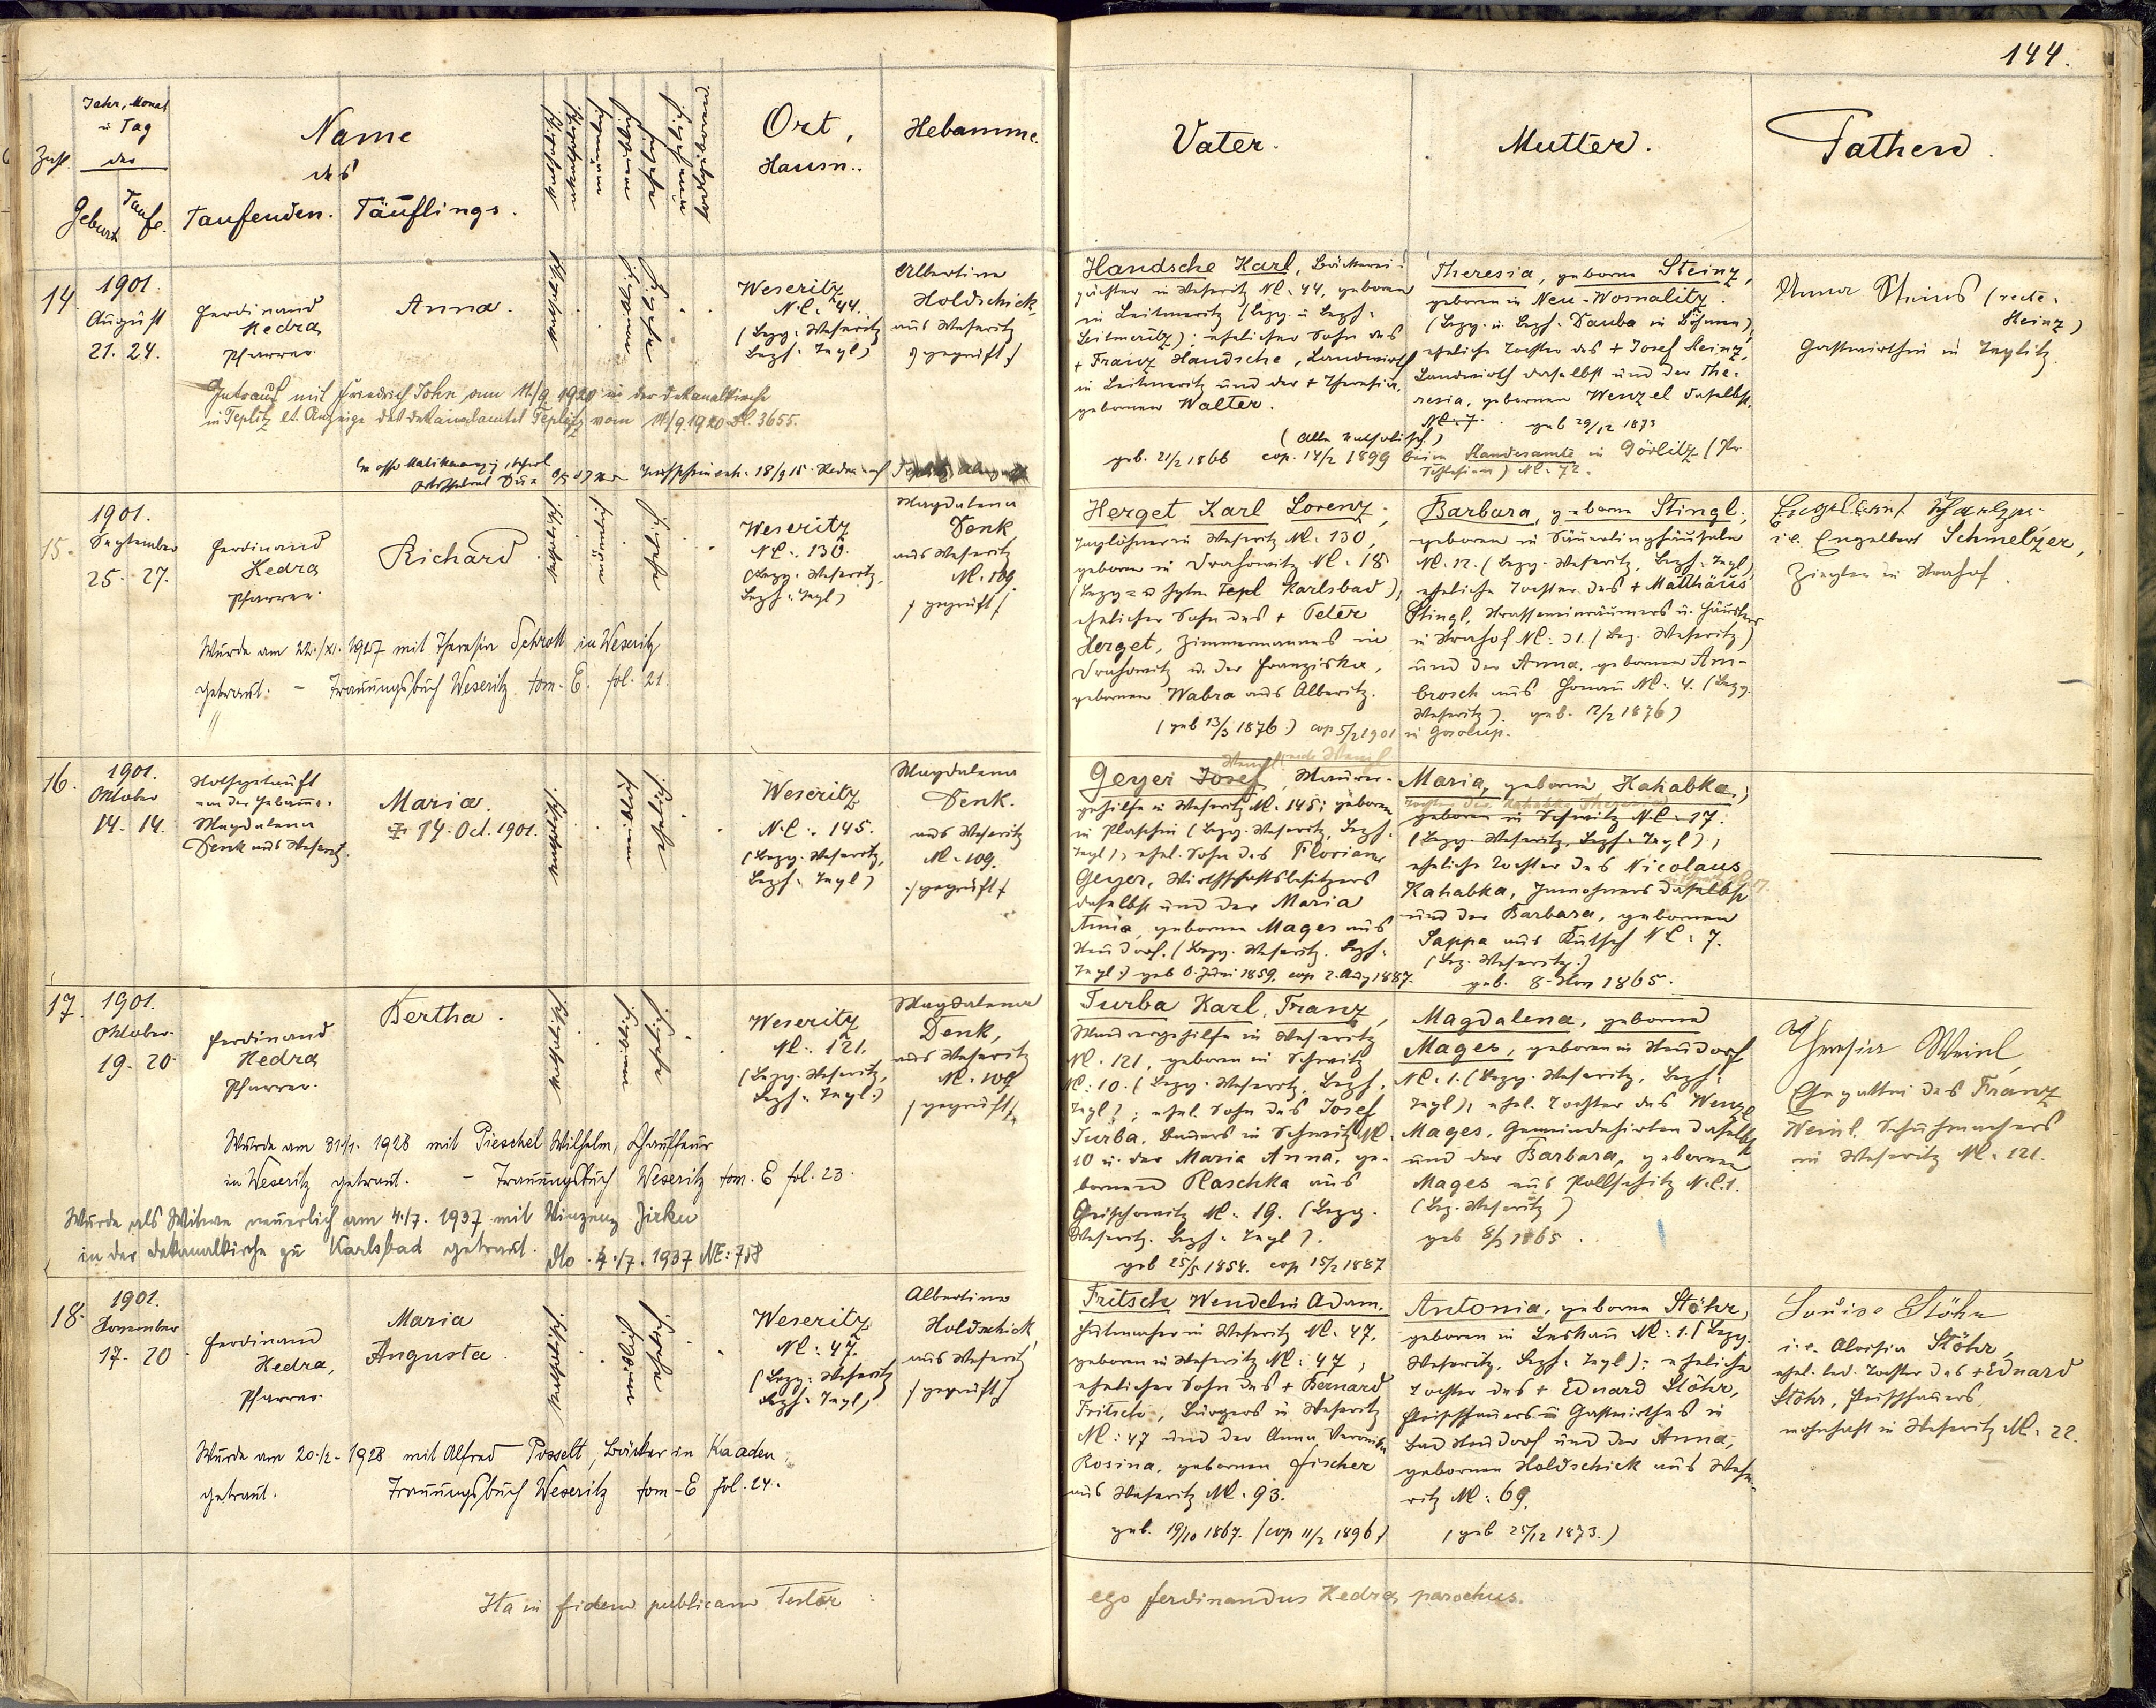 144.
Zahl
Jahr, Monat
u Tag
der
Geburt
Taufe.
Name
des
Taufenden. Täuflings.
katholisch
akatholisch
männlich
weiblich
ehelich
unehelich
Ort,
Hausn..
Hebamme.
Vater.
Mutter.
Pathen.
14.
1901.
August
21. 24.
Ferdinand
Hedra
Pfarrer.
Anna.
katholisch
weiblich
ehelich
Weseritz
NC: 44.
(Bezg: Weseritz
Bezh: Tepl)
Albertine
Holdschick
aus Weseritz
/geprüft/
Getraut mit Friedrich John am 11/9 1920 in der Dekanalkirche
in Teplitz lt. Anzeige des Dekanalamtes Teplitz vom 11/9.1920 Zl. 3655.
Handsche Karl, Bäckerei-
pächter in Weseritz NC: 44, geboren
in Leitmeritz (Bezg. u Bezh:
Leitmeritz); ehelicher Sohn des
+ Franz Handsche, Landwirth
in Leitmeritz und der + Theresia,
gebornen Walter.
(Alle katholisch)
geb. 21/2 1866 cop. 14/2 1899 beim Standesamte in Görlitz (Pr.
Schlesien) NC: 72.
Theresia, geborne Steinz,
geboren in Neu-Wosnalitz.
(Bezg. u Bezh. Dauba in Böhmen),
eheliche Tochter des + Josef Steinz,
Landwirth daselbst und der The-
resia, gebornen Wenzel daselbst.
NC: 7. geb 29/12 1873
Anna Steins (recte:
Steinz)
Gastwirthin in Teplitz.
15.
1901.
September
25. 27.
Ferdinand
Hedra
Pfarrer.
Richard
katholisch
männlich
ehelich
Weseritz
NC: 130.
(Bezg: Weseritz,
Bezh: Tepl)
Magdalena
Denk
aus Weseritz
NC: 109
/geprüft/
Wurde am 22./XI. 1927 mit Theresia Schrott in Weseritz
getraut: - Trauungsbuch Weseritz tom. E. fol. 21.
Herget Karl Lorenz,
Taglöhner in Weseritz NC: 130,
geboren in Drahowitz NC: 18
Karlsbad),
ehelicher Sohn des + Peter
Herget, Zimmermannes in
Drahowitz u. der Franziska,
gebornen Wabra aus Alberitz.
(geb 13/3 1876.) cop 5/2 1901 in Goselup.
Barbara, geborne Stingl,
geboren in Säuerlinghäuseln
NC: 12. (Bezg: Weseritz, Bezh: Tepl)
eheliche Tochter des + Matthäus
Stingl, Strasseneinräumers u. Häuslers
in Strahof NC: 31. (Bez. Weseritz)
und der Anna, gebornen Am-
brosch aus Honau NC: 4. (Bezg.
Weseritz). geb. 12/2 1876)
i.e. Engelbert Schmelzer,
Ziegler in Strahof.
16.
1901.
Oktober
14. 14.
Nothgetauft
von der Hebamme
Magdalena
Denk aus Weseritz.
Maria.
14. Oct. 1901.
katholisch
weiblich
ehelich
Weseritz
N.C: 145.
(Bezg. Weseritz,
Bezh: Tepl)
Magdalena
Denk.
aus Weseritz
NC: 109.
/geprüft/
Wenzl recte Wenzl
Geyer Josef, Maurer-
gehilfe in Weseritz NC. 145; geboren
in Plaschin (Bezg. Weseritz, Bezh.
Tepl); ehel. Sohn des Florian
Geyer, Wirthschaftsbesitzers
daselbst und der Maria
Anna, gebornen Mages aus
Neudorf. (Bezg. Weseritz. Bezh:
Tepl:) geb 6. Juni 1859, cop 2. Aug 1887.
Maria, geborne Kahabka;
geboren in Schwitz NC: 17.
(Bezg. Weseritz, Bezh: Tepl);
eheliche Tochter des Nicolaus
Kahabka, Inwohners daselbst
und der Barbara, gebornen
Sappa aus Kutsch NC: 7.
(Bez. Weseritz.)
geb. 8. Nov 1865.
17.
1901.
Oktober.
19. 20.
Ferdinand
Hedra
Pfarrer.
Bertha.
katholisch
weiblich
ehelich
Weseritz
NC: 121.
(Bezg. Weseritz,
Bezh: Tepl.)
Magdalena
Denk,
aus Weseritz
NC: 109
/geprüft/.
Wurde am 31./1. 1928 mit Pieschel Wilhelm, Chauffeur
in Weseritz getraut. - Trauungsbuch Weseritz tom. E fol. 23.
Wurde als Witwe neuerlich am 4./7. 1937 mit Vinzenz Jirku
in der Dekanalkirche zu Karlsbad getraut. dto. 4./7. 1937 NE: 758
Turba Karl, Franz,
Maurergehilfe in Weseritz
NC. 121, geboren in Schwitz
NC: 10. (Bezg. Weseritz, Bezh.
Tepl); ehel. Sohn des Josef
Turba, Bauers in Schwitz NC.
10 u. der Maria Anna, ge-
bornen Plaschka aus
NC. 19. (Bezg.
Weseritz. Bezh: Tepl).
geb 25/5 1854. cop 15/2 1887
Magdalena, geborne
Mages, geboren in Neudorf
NC: 1. (Bezg. Weseritz, Bezh:
Tepl); ehel. Tochter des Wenzl
Mages, Gemeindehirten daselbst
und der Barbara, gebornen
Mages aus Pollschitz N.C. 1.
(Bez. Weseritz)
geb 8/3 1865.
Theresia Weinl
Ehegattin des Franz
Weinl, Schuhmachers
in Weseritz NC. 121.
18.
1901.
November
17. 20
Ferdinand
Hedra,
Pfarrer
Maria
Augusta.
katholisch
weiblich
ehelich
Weseritz
NC: 47.
(Bezg: Weseritz
Bezh: Tepl)
Albertine
Holdschick
aus Weseritz
/geprüft/
Wurde am 20./2. 1928 mit Alfred Posselt, Bäcker in Kaaden,
getraut. Trauungsbuch Weseritz tom. E fol. 24.
Fritsch Wendelin Adam.
Hutmacher in Weseritz NC. 47.
geboren in Weseritz NC: 47,
ehelicher Sohn des + Bernard
Fritsch, Bürgers in Weseritz
NC: 47 und der Anna Veronika
Rosina, gebornen Fischer
aus Weseritz NC. 93.
geb. 19/10 1867. (cop 11/2 1896)
Antonia, geborne Stöhr,
geboren in Leskau NC: 1. (Bezg.
Weseritz, Bezh: Tepl); eheliche
Tochter des + Eduard Stöhr,
Fleischhauers u Gastwirthes in
Bad Neudorf und der Anna,
gebornen Holdschick aus Wese-
ritz NC: 69.
(geb 25/12 1873.)
Louise Stöhr
i.e. Aloisia Stöhr,
ehel. led. Tochter des + Eduard
Stöhr, Fleischhauers,
wohnhaft in Weseritz NC. 22.
Ita in fidem publicam Testor:
ego Ferdinandus Hedra, parochus.